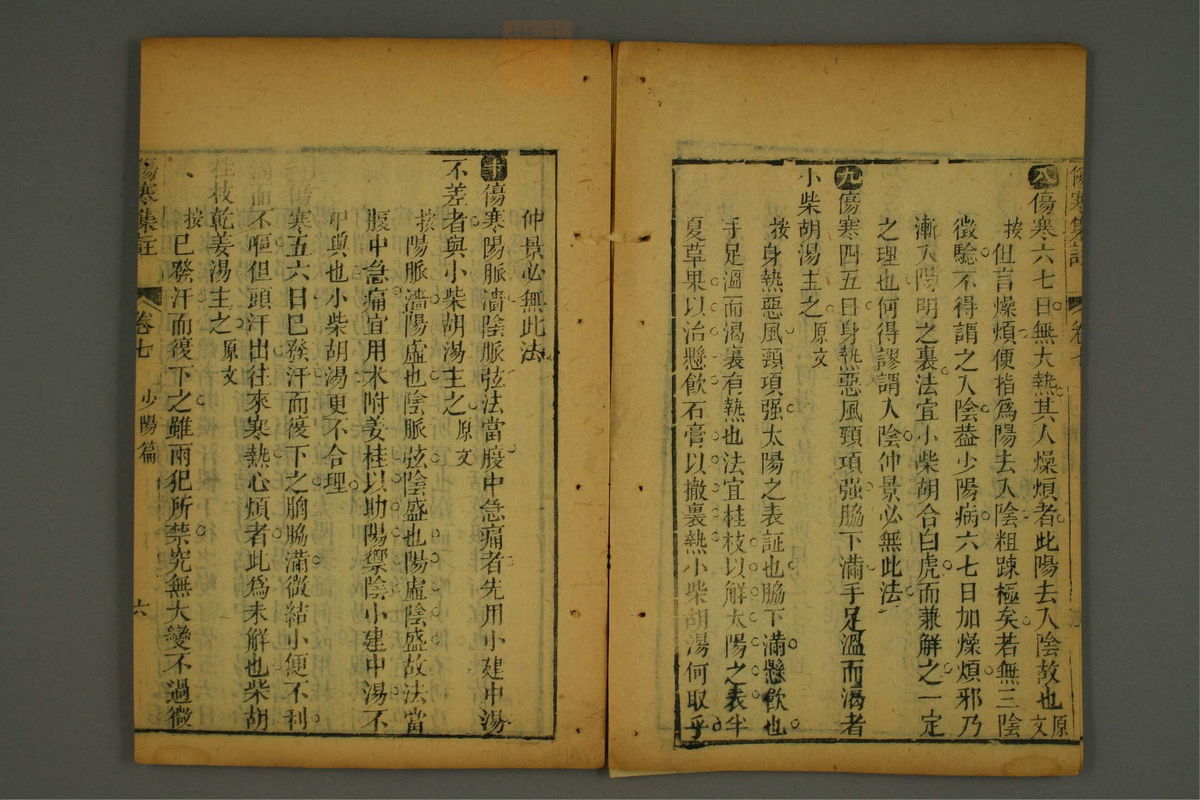 傷寒集註 卷七
八傷寒六七日無大熱其人燥煩者此陽去入陰故也原文
按但言燥煩便指爲陽去入陰粗踈極矣若無三陰
徵驗不得謂之入陰葢少陽病六七日加燥煩邪乃
漸入陽明之裏法宜小柴胡合白虎而兼解之一定
之理也何得謬謂入陰仲景必無此法
九傷寒四五日身熱惡風頸項强脇下滿手足溫而渴者
小柴胡湯主之原文
按身熱惡風頸項强太陽之表証也脇下滿懸飮也
手足溫而渴裏有熱也法宜桂枝以解太陽之表半
夏草果以治懸飮石膏以撤裏熱小柴胡湯何取乎
仲景必無此法
十傷寒陽脈濇陰脈弦法當腹中急痛者先用小建中湯
不差者與小柴胡湯主之原文
按陽脈濇陽虛也陰脈弦陰盛也陽虛陰盛故法當
腹中急痛宜用术附姜桂以助陽禦陰小建中湯不
中與也小柴胡湯更不合理
傷寒五六日巳發汗而復下之胸脇滿微結小便不利
而不嘔但頭汗出往來寒熱心煩者此爲未解也柴胡
桂枝乾姜湯主之原文
按巳發汗而復下之雖兩犯所禁究無大變不過微
傷寒集註 卷七 少陽篇 六